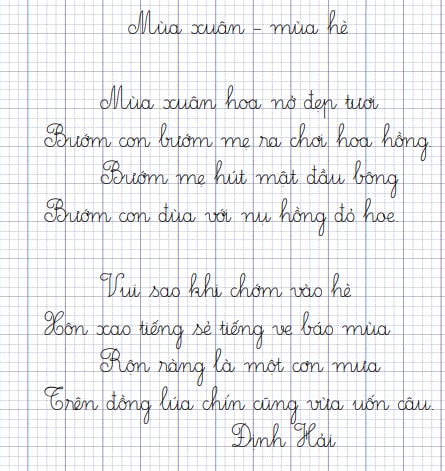 Mùa xuân - mùa hè
Mùa xuân hoa nở đẹp tươi
Bướm con bướm mẹ ra chơi hoa hồng.
Bướm mẹ hút mật đầu bông
Bướm con đùa với nụ hồng đỏ hoe.
Vui sao khi chớm vào hè
Xôn xao tiếng sẻ tiếng ve báo mùa
Rộn ràng là một cơn mưa
Trên đồng lúa chín cũng vừa uốn câu.
Định Hải